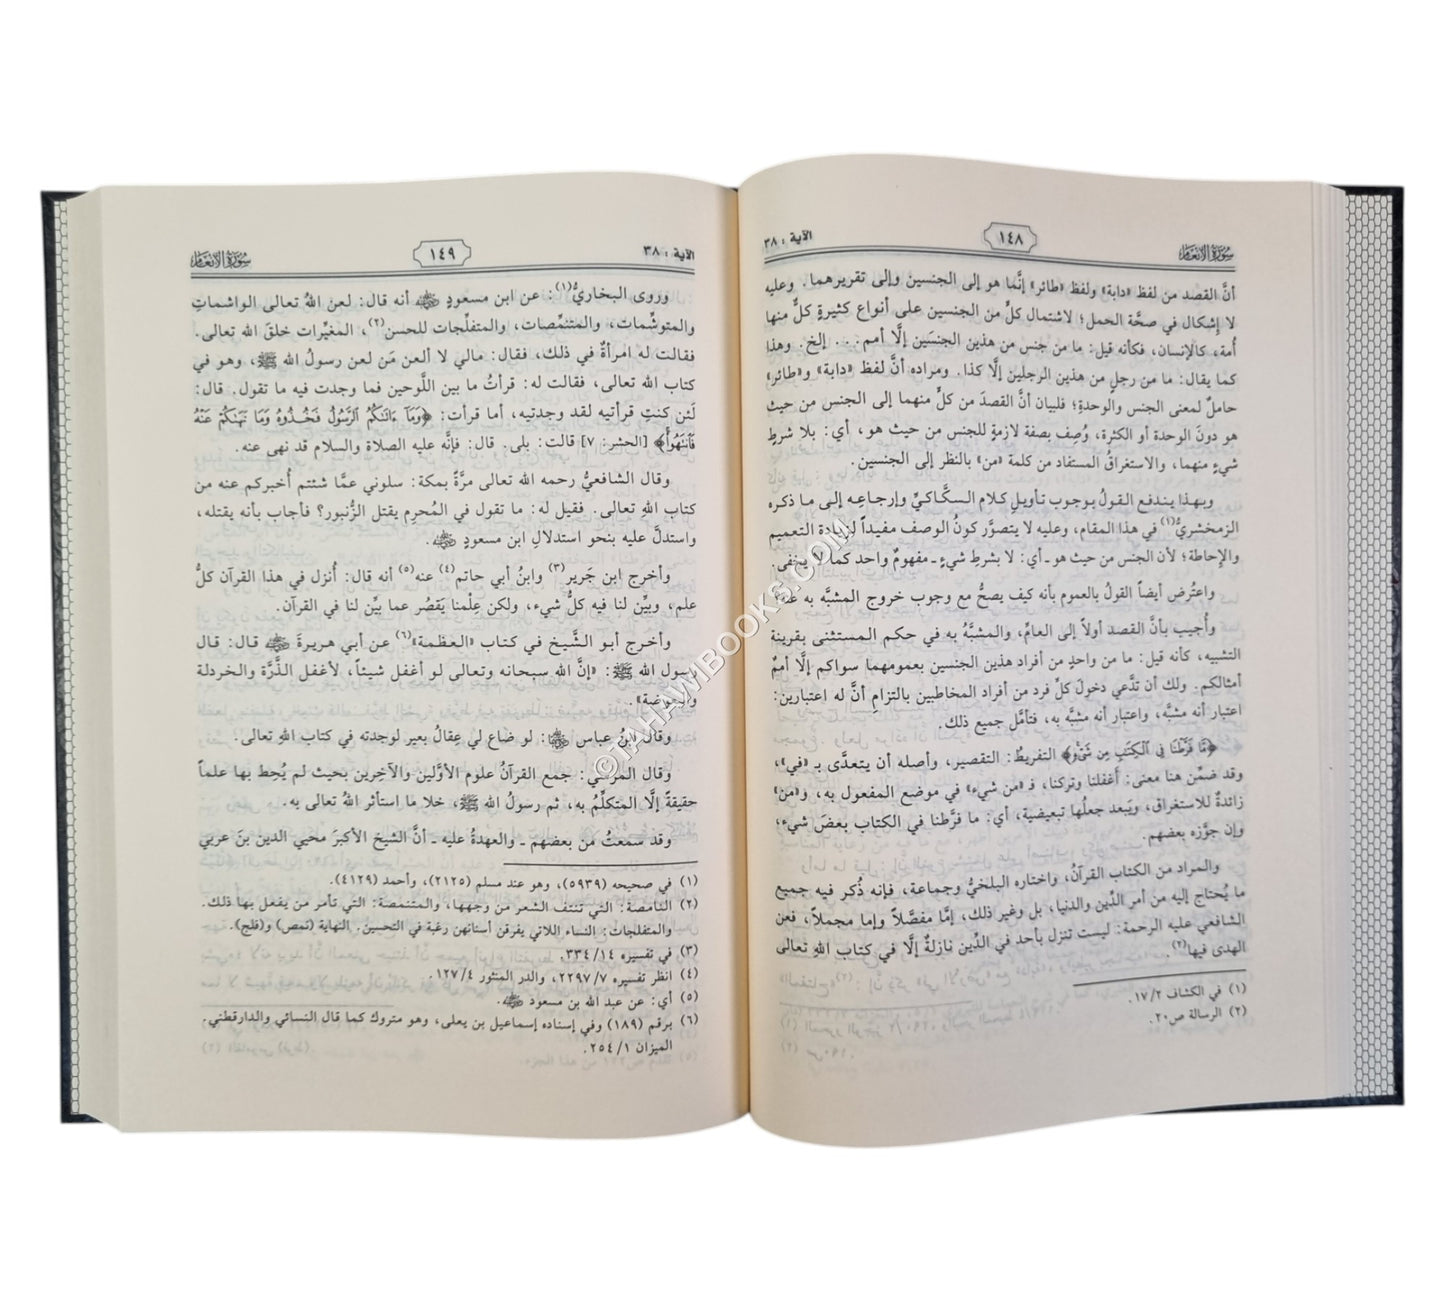 سورة الأنعام
١٤٨
الآية : ٣٨
أنَّ القصد من لفظ «دابة» ولفظ «طائر» إنَّما هو إلى الجنسين وإلى تقريرهما. وعليه
لا إشكال في صحَّة الحمل؛ لاشتمال كلٍّ من الجنسين على أنواع كثيرةٍ كلٌّ منها
أُمة، كالإنسان، فكأنه قيل: ما من جنس من هذين الجنسَين إلَّا أمم... إلخ. وهذا
كما يقال: ما من رجلٍ من هذين الرجلين إلَّا كذا. ومراده أنَّ لفظ «دابة» و«طائر»
حاملٌ لمعنى الجنس والوحدةِ؛ فلبيان أنَّ القصدَ من كلٍّ منهما إلى الجنس من حيث
هو دونَ الوحدة أو الكثرة، وُصِف بصفة لازمةٍ للجنس من حيث هو، أي: بلا شرطٍ
شيءٍ منهما، والاستغراقُ المستفاد من كلمة «من» بالنظر إلى الجنسين.
وبهذا يندفع القولُ بوجوب تأويلِ كلام السكَّاكيِّ وإرجاعِه إلى ما ذكره
الزمخشريُّ(١) في هذا المقام، وعليه لا يتصوَّر كونُ الوصف مفيداً لزيادة التعميم
والإحاطة؛ لأن الجنس من حيث هو ـ أي: لا بشرطِ شيءٍ ـ مفهومٌ واحد كما لا يخفى.
واعتُرض أيضاً القولُ بالعموم بأنه كيف يصحُّ مع وجوب خروج المشبَّه به عنه؟
وأُجيب بأنَّ القصد أولاً إلى العامِّ، والمشبَّهُ به في حكم المستثنى بقرينة
التشبيه، كأنه قيل: ما من واحدٍ من أفراد هذين الجنسين بعمومهما سواكم إلَّا أممٌ
أمثالكم. ولك أن تدَّعي دخولَ كلِّ فرد من أفراد المخاطبين بالتزامِ أنَّ له اعتبارين:
اعتبار أنه مشبَّه، واعتبار أنه مشبَّه به، فتأمَّل جميع ذلك.
﴿مَّا فَرَّطْنَا فِى ٱلْكِتَٰبِ مِن شَىْءٍ﴾ التفريطُ: التقصير، وأصله أن يتعدَّى بـ «في»،
وقد ضمِّن هنا معنى: أغفلنا وتركنا، فـ «من شيء» في موضع المفعول به، و«من»
زائدةٌ للاستغراق، ويَبعد جعلُها تبعيضية، أي: ما فرَّطنا في الكتاب بعضَ شيء،
وإن جوَّزه بعضهم.
والمراد من الكتاب القرآنُ، واختاره البلخيُّ وجماعة، فإنه ذُكر فيه جميع
ما يُحتاج إليه من أمر الدِّين والدنيا، بل وغير ذلك، إمَّا مفصَّلاً وإما مجملاً، فعن
الشافعي عليه الرحمة: ليست تنزل بأحد في الدِّين نازلةٌ إلَّا في كتاب اللهِ تعالى
الهدى فيها(٢).
(١) في الكشاف ١٧/٢.
(٢) الرسالة ص٢٠.
الآية : ٣٨
١٤٩
سورة الأنعام
وروى البخاريُّ(١): عن ابن مسعودٍ ﵁ أنه قال: لعن اللهُ تعالى الواشماتِ
والمتوشِّمات، والمتنمِّصات، والمتفلِّجات للحسن(٢)، المغيِّرات خلقَ الله تعالى.
فقالت له امرأةٌ في ذلك، فقال: مالي لا ألعن مَن لعن رسولُ الله ﷺ، وهو في
كتاب الله تعالى، فقالت له: قرأتُ ما بين اللَّوحين فما وجدت فيه ما تقول. قال:
لَئن كنتِ قرأتيه لقد وجدتيه، أما قرأت: ﴿وَمَآ ءَاتَىٰكُمُ ٱلرَّسُولُ فَخُذُوهُ وَمَا نَهَىٰكُمْ عَنْهُ
فَٱنتَهُوا۟﴾ [الحشر: ٧] قالت: بلى. قال: فإنَّه عليه الصلاة والسلام قد نهى عنه.
وقال الشافعيُّ رحمه الله تعالى مرَّةً بمكة: سلوني عمَّا شئتم أُخبركم عنه من
كتاب اللهِ تعالى. فقيل له: ما تقول في المُحرِم يقتل الزُّنبور؟ فأجاب بأنه يقتله،
واستدلَّ عليه بنحو استدلالِ ابن مسعودٍ ﵁.
وأخرج ابن جَرير(٣) وابنُ أبي حاتم(٤) عنه(٥) أنه قال: أُنزل في هذا القرآن كلُّ
علم، وبيِّن لنا فيه كلُّ شيء، ولكن عِلْمنا يَقصُر عما بيِّن لنا في القرآن.
وأخرج أبو الشَّيخ في كتاب «العظمة»(٦) عن أبي هريرةَ ﵁ قال: قال
رسول الله ﷺ: «إنَّ الله سبحانه وتعالى لو أغفل شيئاً، لأغفل الذَّرَّة والخردلة
والبعوضة».
وقال ابنُ عباس ﵄: لو ضاع لي عِقالُ بعير لوجدته في كتاب اللهِ تعالى.
وقال المرسي: جمع القرآنُ علوم الأوَّلين والآخِرين بحيث لم يُحِط بها علماً
حقيقةً إلَّا المتكلِّمُ به، ثم رسولُ الله ﷺ، خلا ما استأثر اللهُ تعالى به.
وقد سمعتُ من بعضهم ـ والعهدةُ عليه ـ أنَّ الشيخ الأكبرَ محيي الدين بنَ عربي
(١) في صحيحه (٥٩٣٩)، وهو عند مسلم (٢١٢٥)، وأحمد (٤١٢٩).
(٢) النامصة: التي تنتف الشعر من وجهها، والمتنمصة: التي تأمر من يفعل بها ذلك.
والمتفلجات: النساء اللاتي يفرقن أسنانهن رغبة في التحسين. النهاية (نمص) و(فلج).
(٣) في تفسيره ٣٣٤/١٤.
(٤) انظر تفسيره ٢٢٩٧/٧، والدر المنثور ١٢٧/٤.
(٥) أي: عن عبد الله بن مسعود ﵁.
(٦) برقم (١٨٩) وفي إسناده إسماعيل بن يعلى، وهو متروك كما قال النسائي والدارقطني.
الميزان ٢٥٤/١.
©TAHAWIBOOKS.COM